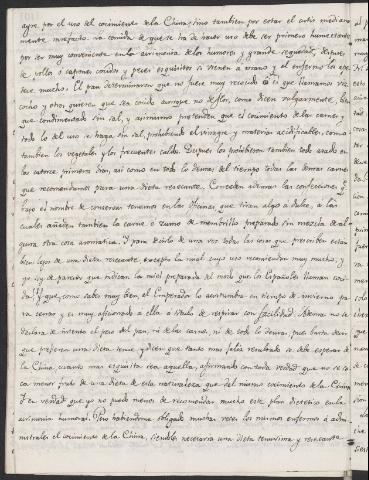 agre, por el uso del cocimiento de la China, sino tambien por estar el cutis mediana
mente la comida de que se ha de hacer uso debe ser primero humectante
por ser muy conveniente en la acrimonia de los humores y grande sequedad, despues
de pollos o capones cocidos y peces exquisitos si vienen a mano y el enfermo los ape
tece mucho. El pan determinaron que no fuese muy recocido o el que llamamos viz
cocho y otros quieren que sea cocido aunque no de flor, como dicen vulgarmente, sino
que condimentado sin sal, y asimismo pretenden que el cocimiento de las carnes y
todo lo del uso se haga sin sal, prohibiendo el vinagre y materias acidificables, como
tambien los vegetales y los frecuentes caldos. Despues los prohibieron tambien todo asado en
los catorce primeros dias, así como en todo lo demas del tiempo todas las demas carnes
que recomendamos para una dieta resecante. Conceden ademas las confecciones q.
bajo el nombre de conservas tenemos en las Oficinas que tiran algo a dulce, a las
cuales añaden tambien la carne o zumo de membrillo preparado sin mezcla de al
guna otra cosa aromatica. Y para decirlo de una vez todas las cosas que prescriben estan
bien lejos de una dieta resecante excepto la miel cuyo uso recomiendan muy mucho, y
yo soy de parecer que indican la miel preparada del modo que los Españoles llaman
y que, como sabes muy bien, el Emperador lo acostumbra en tiempo de invierno pa
ra cenar y es muy aficionado a ella a titulo de respirar con facilidad. Ademas no se
declara de intento el peso del pan, ni de las carnes, ni de todo lo demas, pues basta decir
que prefieren una dieta tenue y dicen que tanto mas feliz resultado se debe esperar de
la China, cuanto mas exquisita sea aquella, afirmando con toda verdad que no se sa
ca menos fruto de una dieta de esta naturaleza que del mismo cocimiento de la China.
Y en verdad que yo no puedo menos de recomendar mucho este plan dietetico en la
acrimonia humoral. Pero habiendome obligado muchas veces los mismos enfermos á admi-
nistrarles el cocimiento de la China, siendoles necesaria una dieta tenuisima y resecante